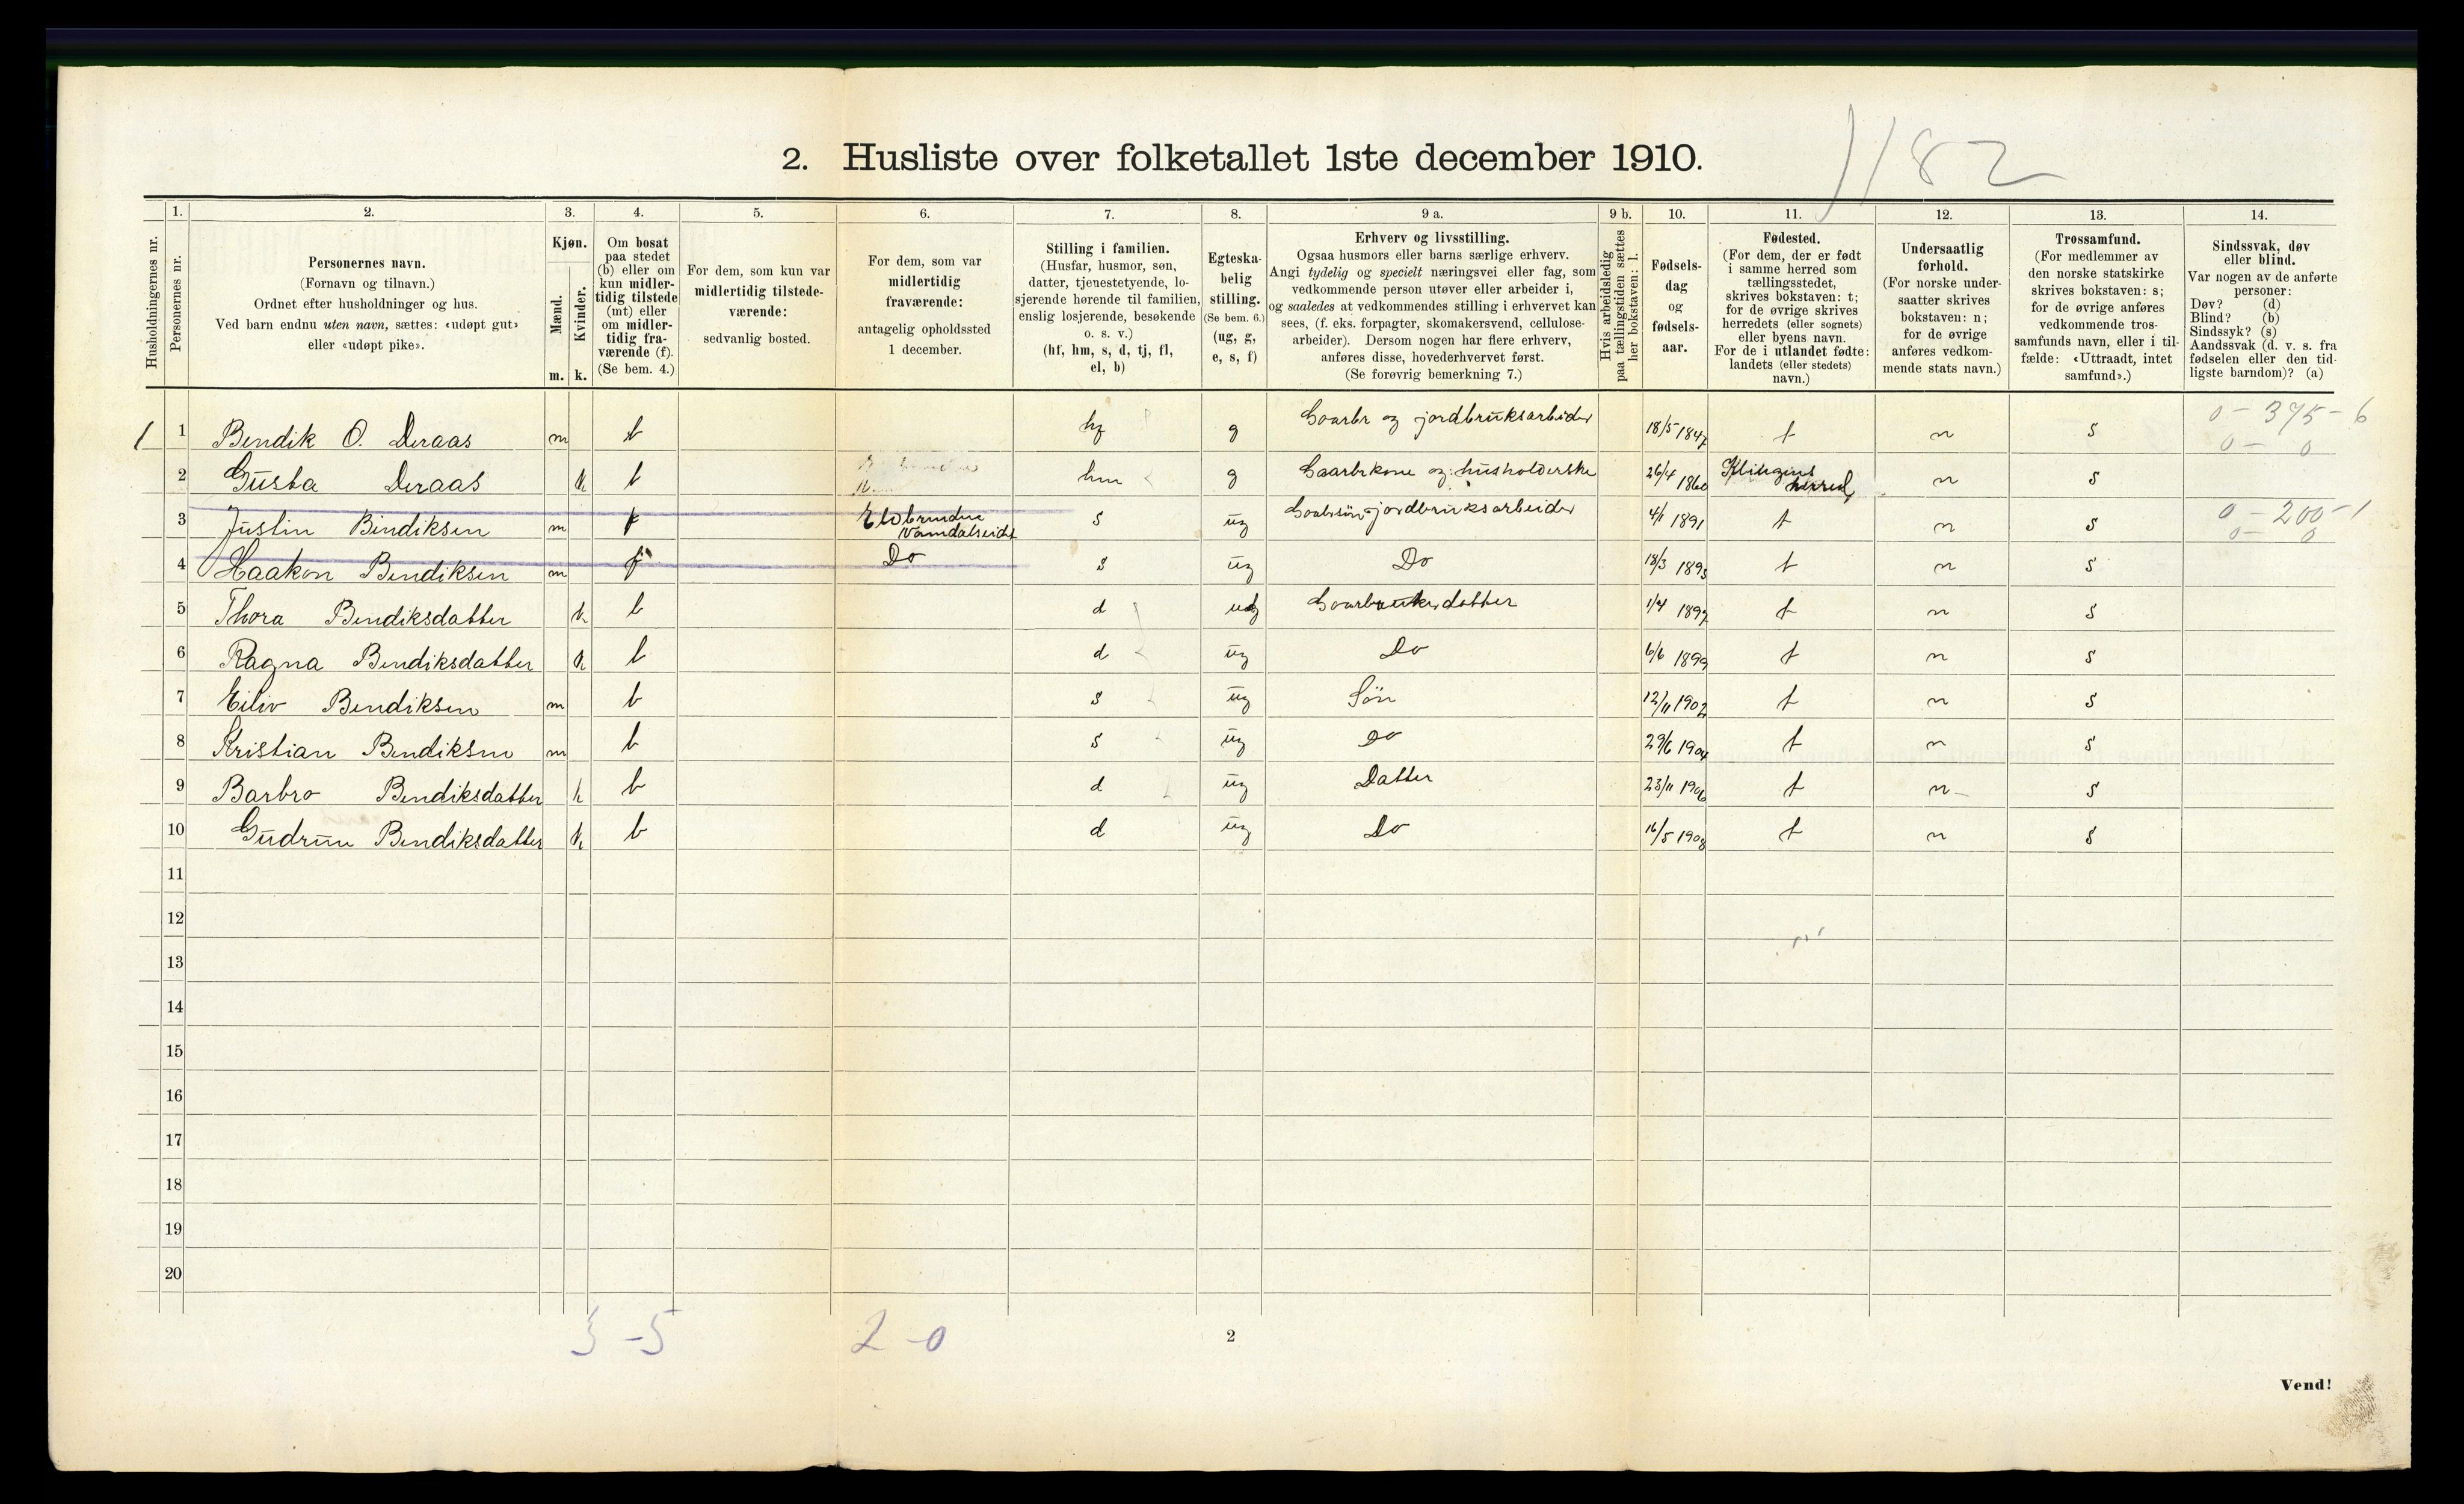 1182
2. Husliste over folketallet 1ste december 1910.
1. 2. 3. 4. 5. 6. 7. 8. 9 a. 9 b. 10. 11. 12. 13. 14.
Husholdningernes nr.
Personernes nr.
Personernes navn.
(Fornavn og tilnavn.)
Ordnet efter husholdninger og hus.
Ved barn endnu uten navn, sættes: «udøpt gut»
eller «udøpt pike».
Kjøn.
Mænd.
Kvinder.
m. k.
Om bosat
paa stedet
(b) eller om
kun midler-
tidig tilstede
(mt) eller
om midler-
tidig fra-
værende (f).
(Se bem. 4.)
For dem, som kun var
midlertidig tilstede-
værende:
sedvanlig bosted.
For dem, som var
midlertidig
fraværende:
antagelig opholdssted
1 december.
Stilling i familien.
(Husfar, husmor, søn,
datter, tjenestetyende, lo-
sjerende hørende til familien,
enslig losjerende, besøkende
o. s. v.)
(hf, hm, s, d, tj, fl,
el, b)
Egteska-
belig
stilling.
(Se bem. 6.)
(ug, g,
e, s, f)
Erhverv og livsstilling.
Ogsaa husmors eller barns særlige erhverv.
Angi tydelig og specielt næringsvei eller fag, som
vedkommende person utøver eller arbeider i,
og saaledes at vedkommendes stilling i erhvervet kan
sees, (f. eks. forpagter, skomakersvend, cellulose-
arbeider). Dersom nogen har flere erhverv,
anføres disse, hovederhvervet først.
(Se forøvrig bemerkning 7.)
Hvis arbeidsledig
paa tællingstiden sættes
her bokstaven: l.
Fødsels-
dag
og
fødsels-
aar.
Fødested.
(For dem, der er født
i samme herred som
tællingsstedet,
skrives bokstaven: t;
for de øvrige skrives
herredets (eller sognets)
eller byens navn.
For de i utlandet fødte:
landets (eller stedets)
navn.)
Undersaatlig
forhold.
(For norske under-
saatter skrives
bokstaven: n;
for de øvrige
anføres vedkom-
mende stats navn.)
Trossamfund.
(For medlemmer av
den norske statskirke
skrives bokstaven: s;
for de øvrige anføres
vedkommende tros-
samfunds navn, eller i til-
fælde: «Uttraadt, intet
samfund».)
Sindssvak, døv
eller blind.
Var nogen av de anførte
personer:
Døv? (d)
Blind? (b)
Sindssyk? (s)
Aandssvak (d. v. s. fra
fødselen eller den tid-
ligste barndom)? (a)
1 1 Bendik O. Deraas m b hf g Gaarbr og jordbruksarbeider 18/5 1847 t n s 0 - 375 - 6
0 - 0
2 Gusta Deraas k b hm g Gaarbrkone og husholderske 26/4 1860 herred n s
3 Justin Bendiksen m f s ug Gaarbrsün jordbruksarbeider 4/1 1891 t n s 0 - 200 - 1
0 - 0
4 Haakon Bendiksen m f Do s ug Do 18/3 1895 t n s
5 Thora Bendiksdatter k b d ug Gaarbruksdatter 1/4 1897 t n s
6 Ragna Bendiksdatter k b d ug Do 6/6 1899 t n s
7 Eiliv Bendiksen m b s ug Sön 12/11 1902 t n s
8 Kristian Bendiksen m b s ug Do 29/6 1904 t n s
9 Barbro Bendiksdatter k b d ug Datter 23/11 1906 t n s
10 Gudrun Bendiksdatter k b d ug Do 16/5 1908 t n s
11
12
13
14
15
16
17
18
19
20
3 - 5 2 - 0
2
Vend!